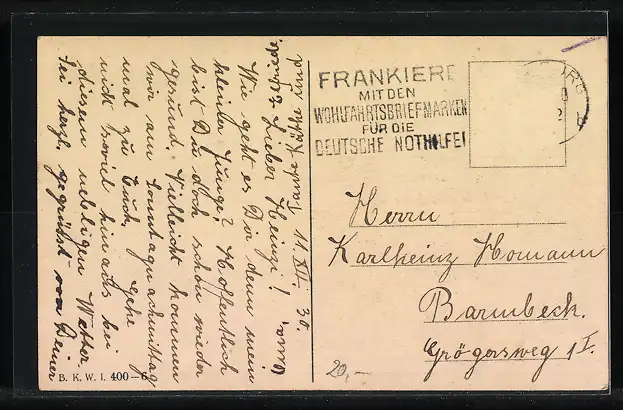 11.XII.30.
Lieber Heinzi!
Wie geht es Dir denn mein
kleiner Junge? Hoffentlich
bist Du doch schon wieder
gesund. Vielleicht kommen
wir am Sonntagnachmittag
mal zu Euch, gehe
nicht soviel hinaus bei
diesem nebeligen Wetter.
Sei herzl. gegrüsst von Deiner
Tante Käthe und
B. K. W. I. 400-6
FRANKIERE
MIT DEN
WOHLFAHRTSBRIEFMARKEN
FÜR DIE
DEUTSCHE NOTHILFE!
Herrn
Karlheinz Homann
Barmbeck.
Grögersweg 1 I.
20,-